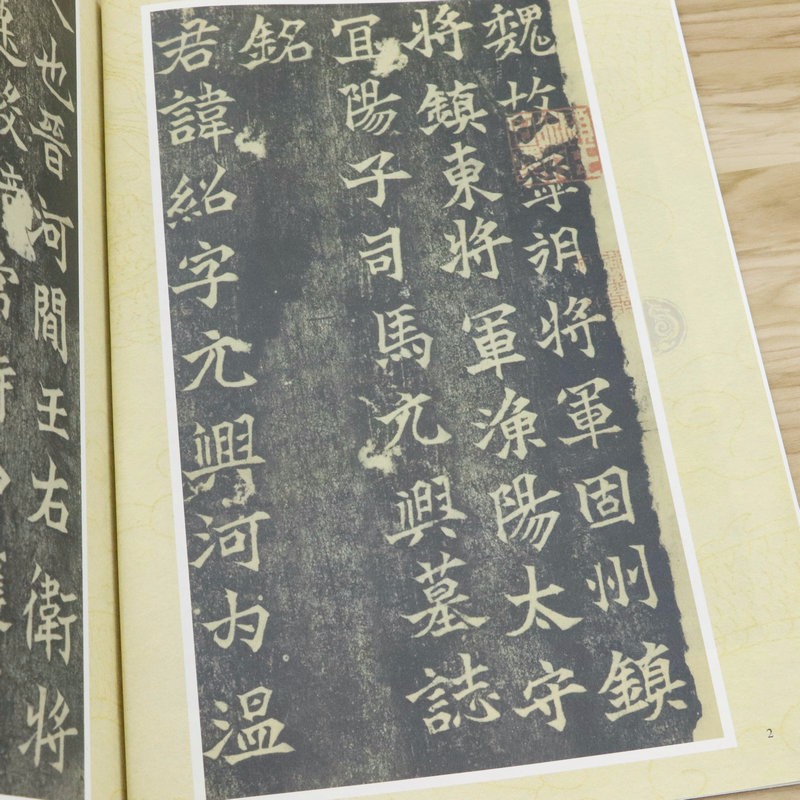 魏故寧朔將軍固州鎮
將鎮東將軍漁陽太守
冝陽子司馬元興墓誌
銘
君諱紹字元興河內溫
人也晉河間王右衛將
2